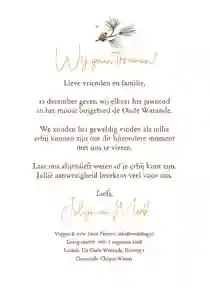 Wij gaan trouwen!
Lieve vrienden en familie,
12 december geven wij elkaar het jawoord
in het mooie bosgebied de Oude Warande.
We zouden het geweldig vinden als jullie
erbij kunnen zijn om dit bijzondere moment
met ons te vieren.
Laat ons alsjeblieft weten of je erbij kunt zijn.
Jullie aanwezigheid betekent veel voor ons.
Liefs,
Vragen &
Graag reactie vóór 1 augustus
Locatie: De Oude Warande,
Dresscode: Chique Winter